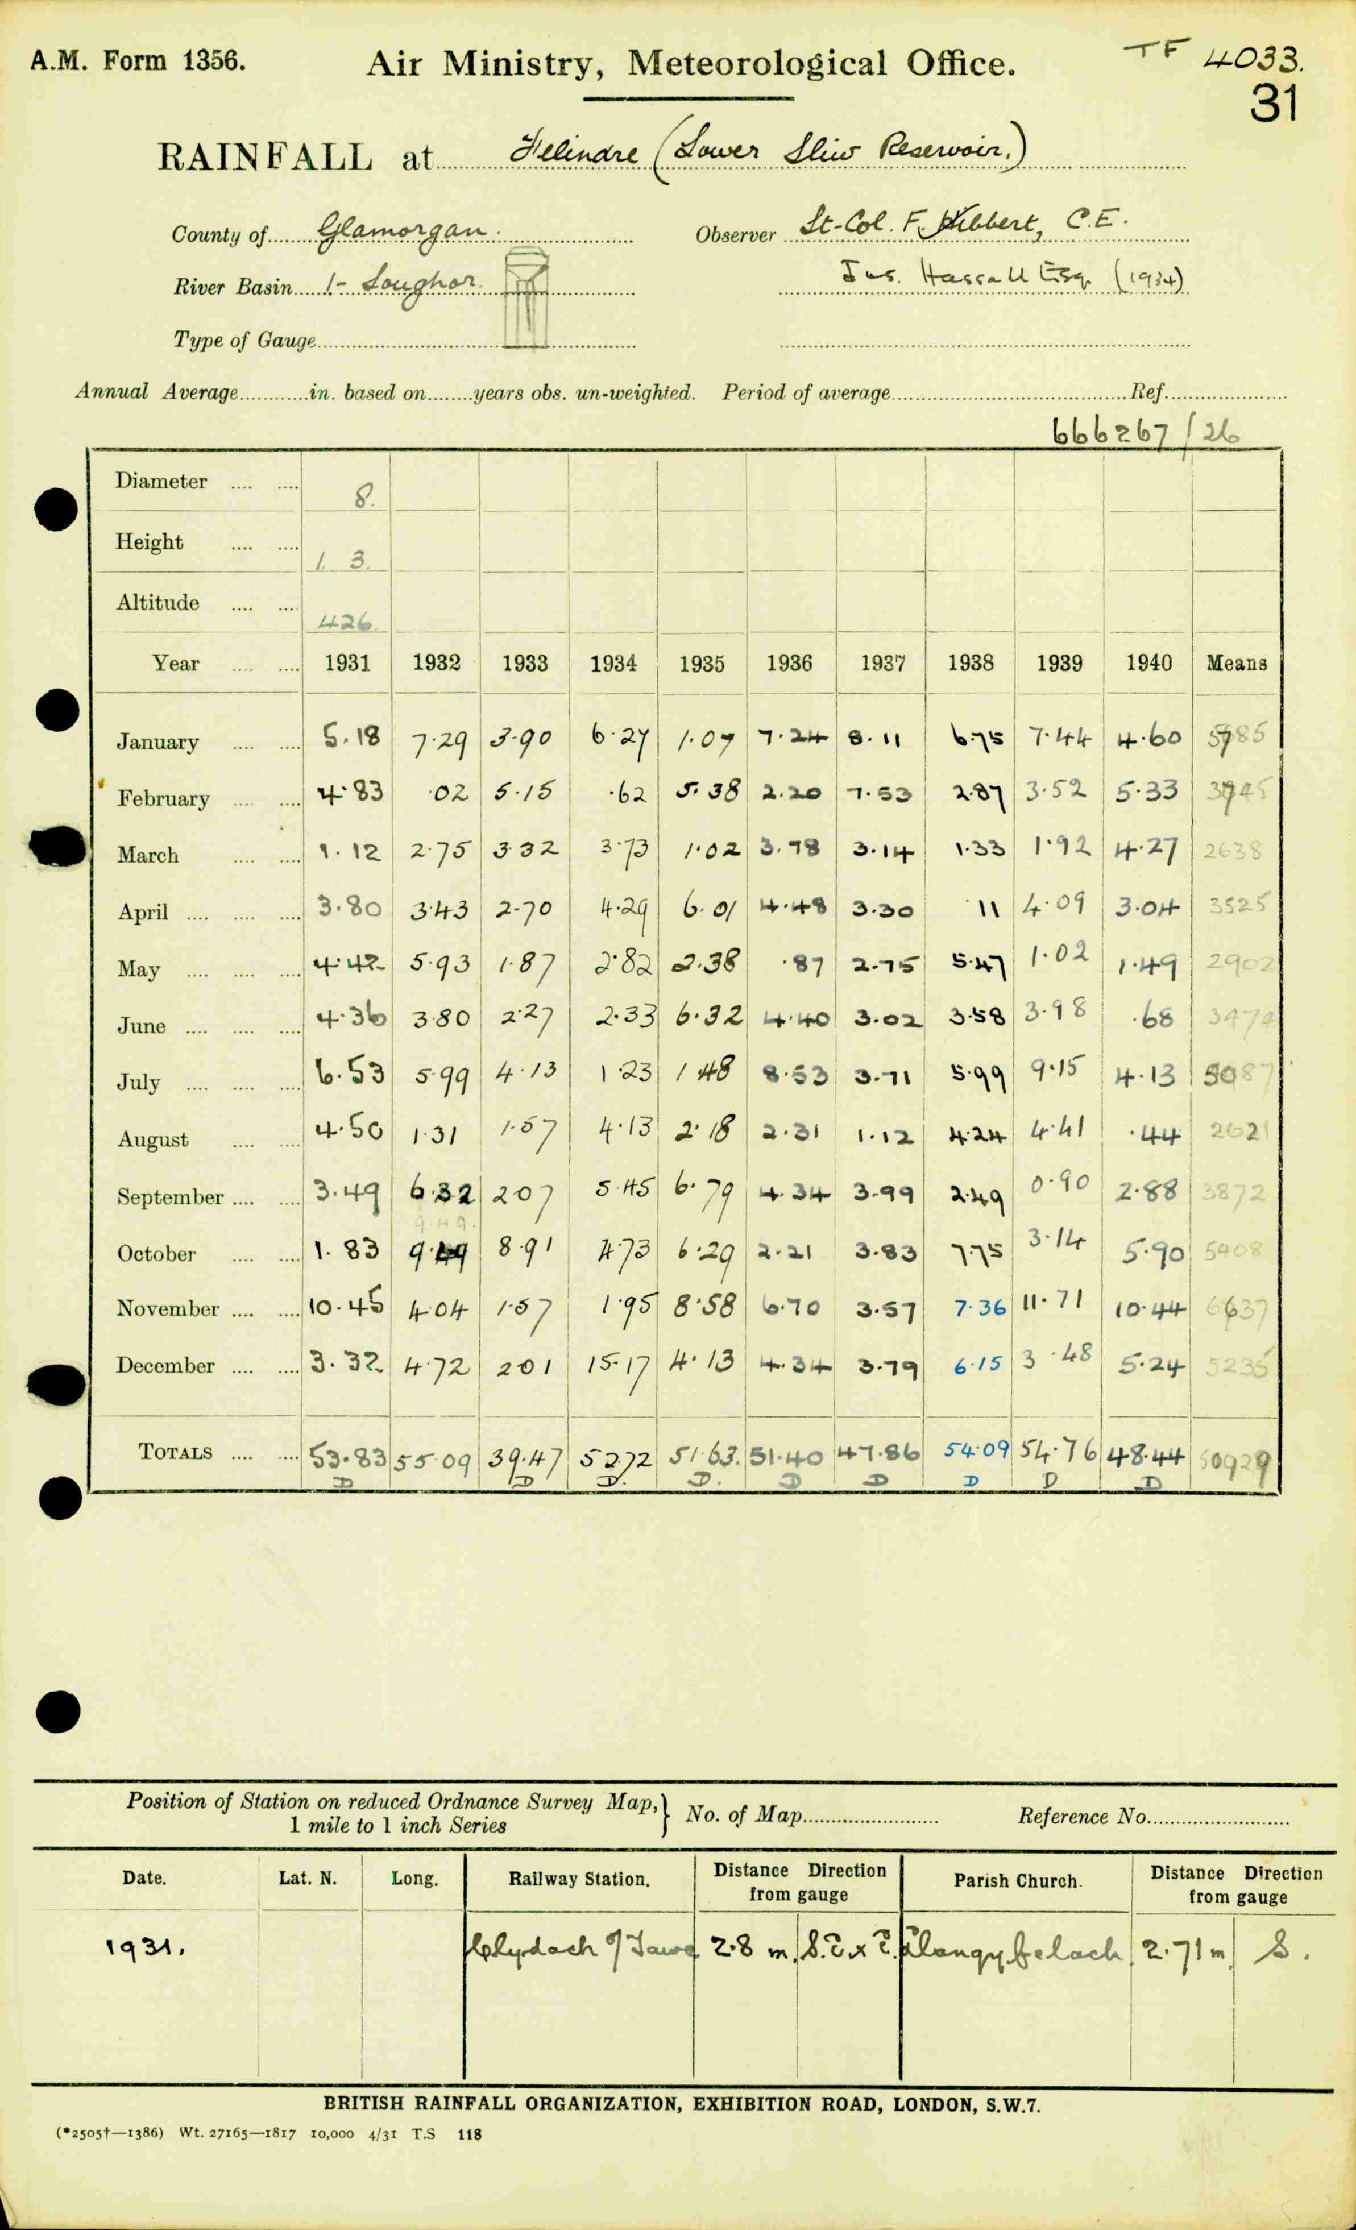 A.M. Form 1356.
Air Ministry, Meteorological Office.
TF 4033.
31
RAINFALL at Felindre (Lower Lliw Reservoir.)
County of Glamorgan. Observer Lt-Col. F. Hibbert, C.E.
River Basin 1- Loughor. Jas. Hassall Esq. (1934)
Type of Gauge
Annual Average in. based on years obs. un-weighted. Period of average Ref.
666267/26
Diameter .... .... 8.
Height .... .... 1. 3.
Altitude .... .... 426.
Year .... .... 1931 1932 1933 1934 1935 1936 1937 1938 1939 1940 Means
January .... .... 5.18 7.29 3.90 6.27 1.07 7.24 8.11 6.75 7.44 4.60 5785
February .... .... 4.83 .02 5.15 .62 5.38 2.20 7.53 2.87 3.52 5.33 3745
March .... .... 1.12 2.75 3.32 3.73 1.02 3.78 3.14 1.33 1.92 4.27 2638
April .... .... .... 3.80 3.43 2.70 4.29 6.01 4.48 3.30 .11 4.09 3.04 3525
May .... .... .... 4.42 5.93 1.87 2.82 2.38 .87 2.75 5.47 1.02 1.49 2902
June .... .... .... 4.36 3.80 2.27 2.33 6.32 4.40 3.02 3.58 3.98 .68 3474
July .... .... .... 6.53 5.99 4.13 1.23 1.48 8.53 3.71 5.99 9.15 4.13 5087
August .... .... 4.50 1.31 1.57 4.13 2.18 2.31 1.12 4.24 4.41 .44 2621
September .... .... 3.49 6.32 2.07 5.45 6.79 4.34 3.99 2.49 0.90 2.88 3872
9.49.
October .... .... 1.83 9.49 8.91 4.73 6.29 2.21 3.83 7.75 3.14 5.90 5408
November .... .... 10.45 4.04 1.57 1.95 8.58 6.70 3.57 7.36 11.71 10.44 6637
December .... .... 3.32 4.72 2.01 15.17 4.13 4.34 3.79 6.15 3.48 5.24 5235
TOTALS .... .... 53.83 55.09 39.47 52.72 51.63. 51.40 47.86 54.09 54.76 48.44 50929
D D D. D. D D D D D
Position of Station on reduced Ordnance Survey Map, } No. of Map Reference No.
1 mile to 1 inch Series
Date. Lat. N. Long. Railway Station. Distance Direction from gauge Parish Church. Distance Direction from gauge
1931. Clydach o/ Tawe 2.8 m. S.E x E. Llangyfelach 2.71 m. S.
BRITISH RAINFALL ORGANIZATION, EXHIBITION ROAD, LONDON, S.W.7.
(*2505†—1386) Wt. 27165—1817 10,000 4/31 T.S 118